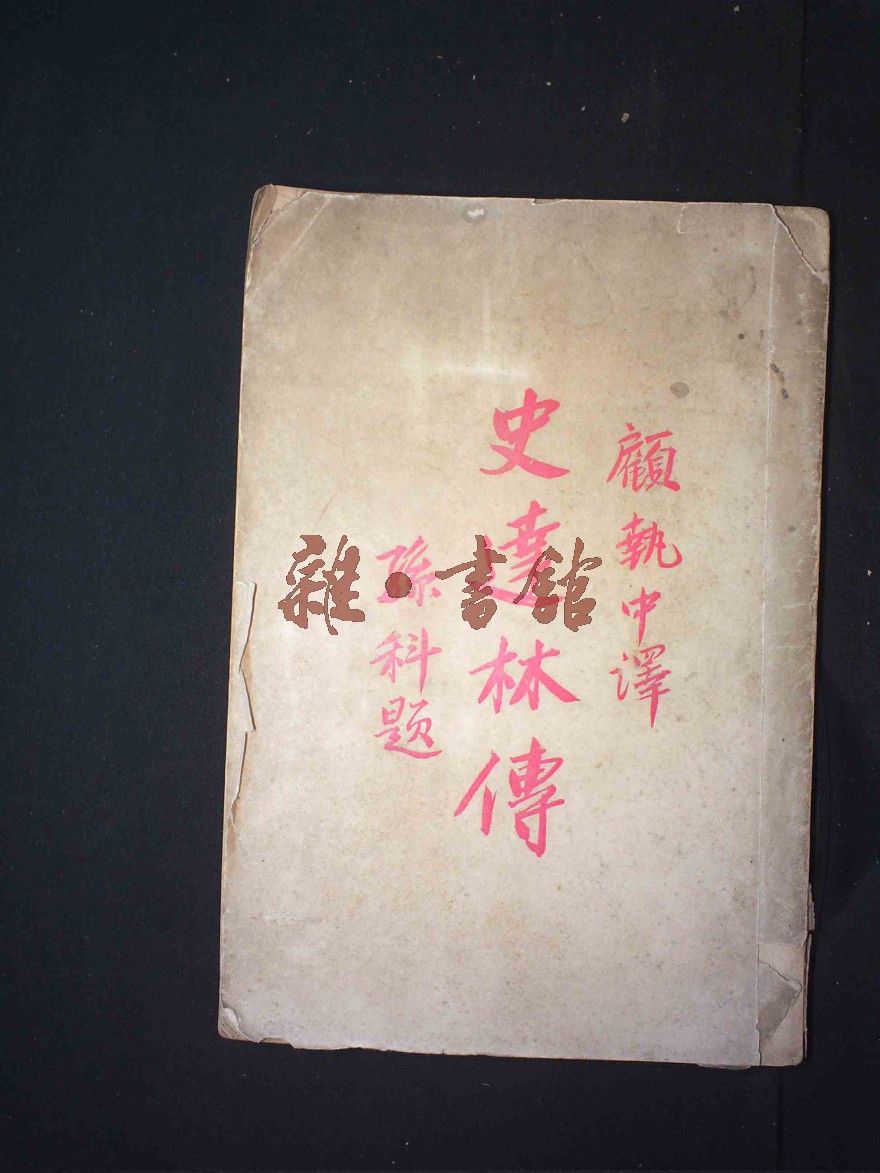 顧執中譯
史達林傳
孫科题
雜·書館